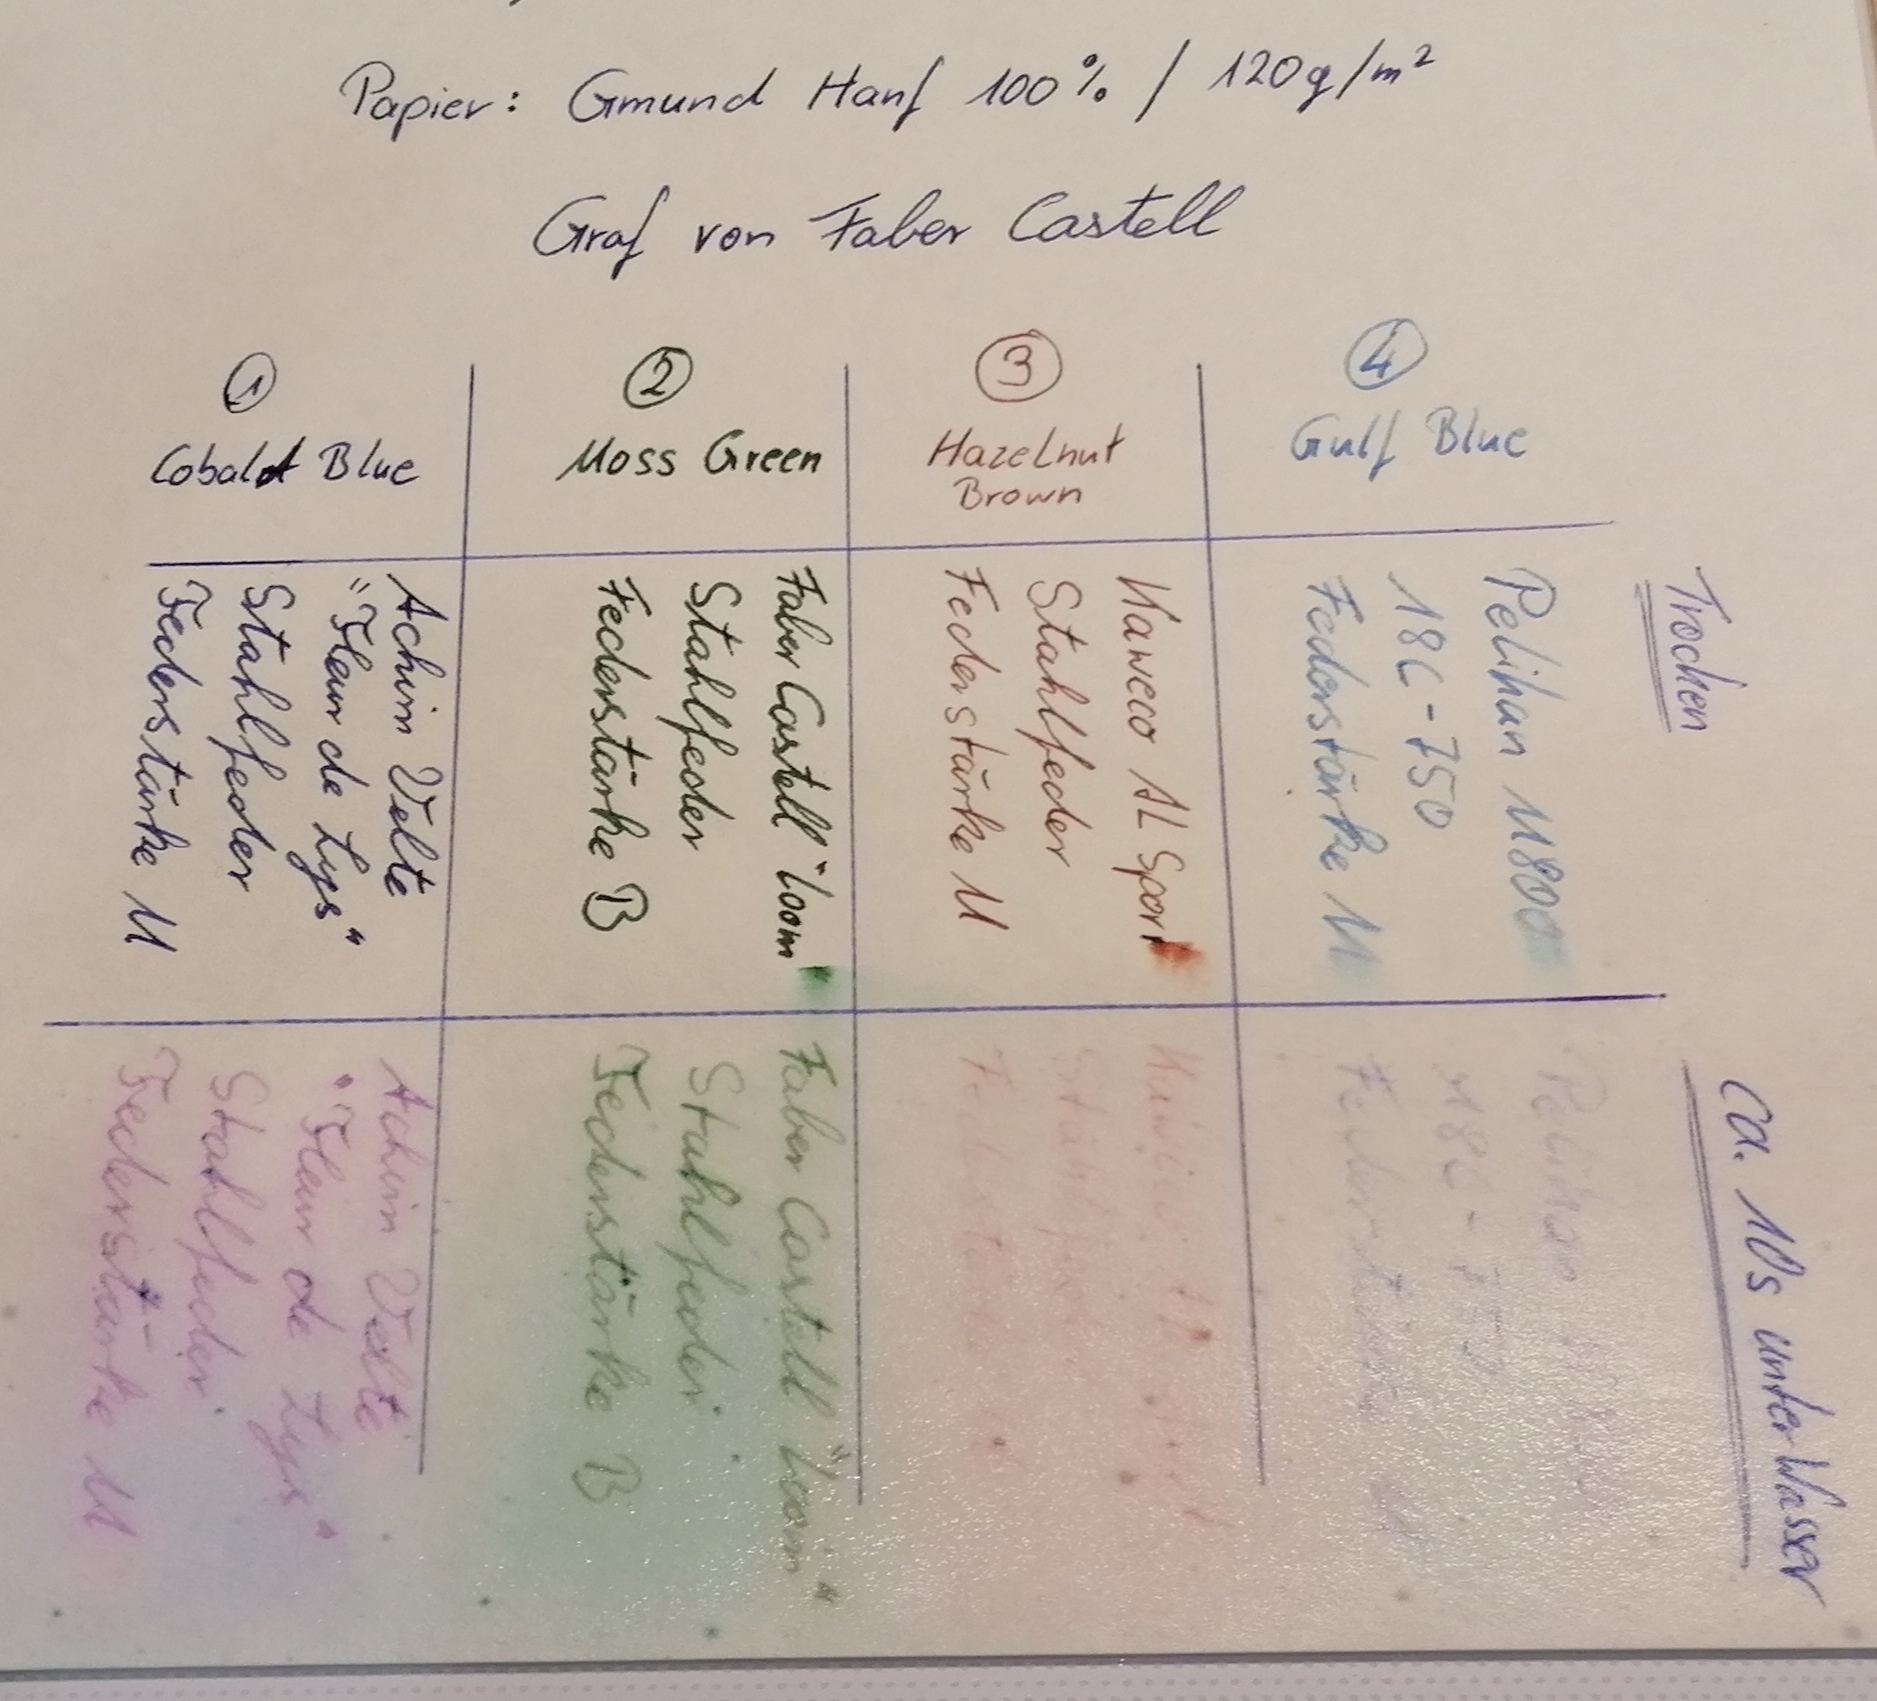 Papier: Gmund Hanf 100% / 120g/m²
Graf von Faber Castell
1
Cobalt Blue
2
Moss Green
3
Hazelnut
Brown
4
Gulf Blue
Trocken
Achim Velte
"Fleur de Lys"
Stahlfeder
Federstärke M
Faber Castell "Loom"
Stahlfeder
Federstärke B
Kaweco AL Sport
Stahlfeder
Federstärke M
Pelikan M800
18C-750
Federstärke M
ca. 10s unter Wasser
Achim Velte
"Fleur de Lys"
Stahlfeder
Federstärke M
Faber Castell "Loom"
Stahlfeder
Federstärke B
Kaweco
Federstärke
Pelikan
18C-750
Federstärke M